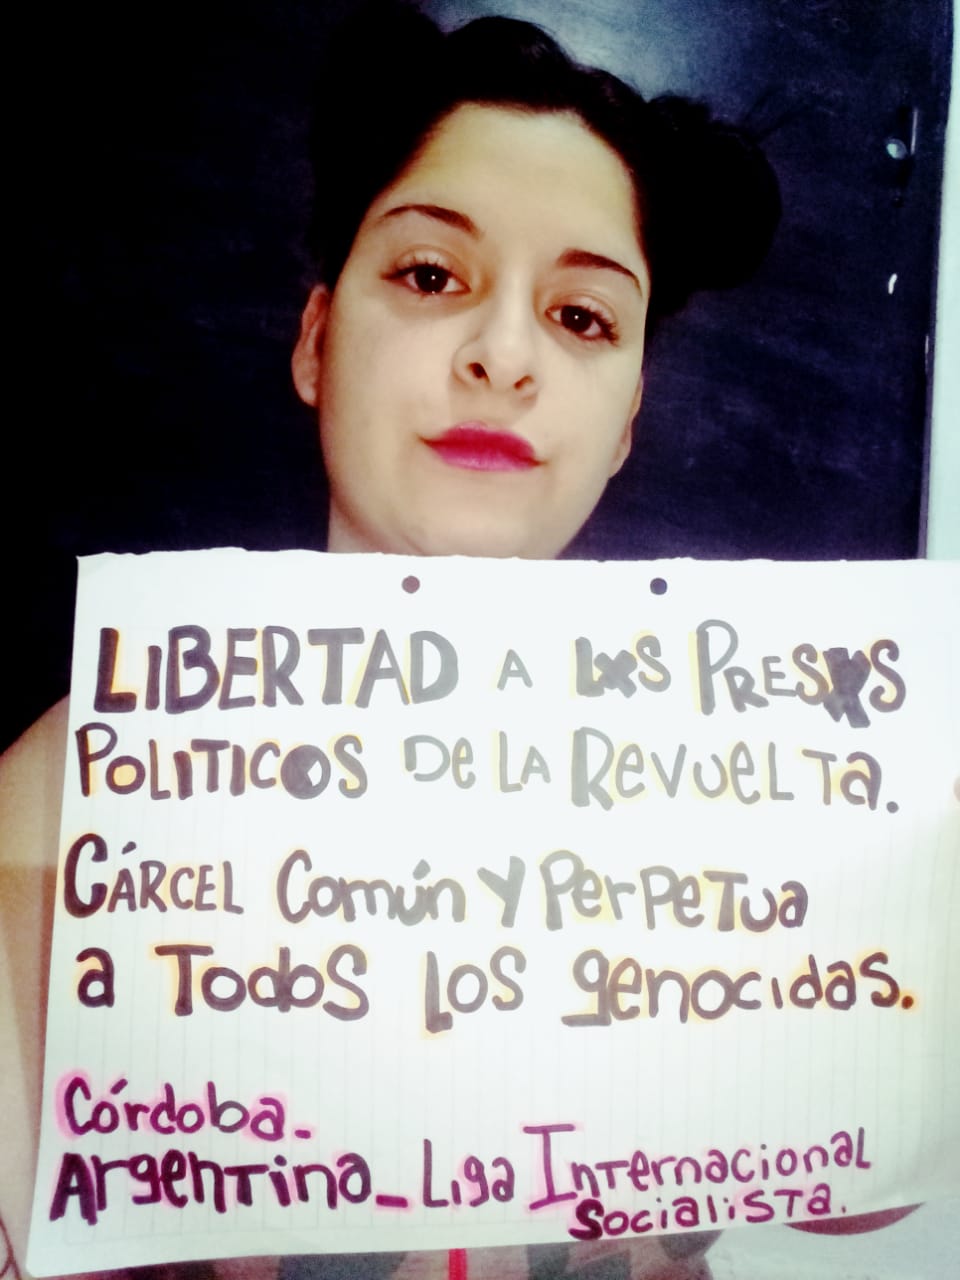 LIBERTAD A LXS PRESXS
POLITICOS DE LA REVUELTA.
CÁRCEL COMÚN Y PERPETUA
a TODOS LOS genocidas.
CÓrdoba_
Argentina_ Liga Internacional
Socialista.